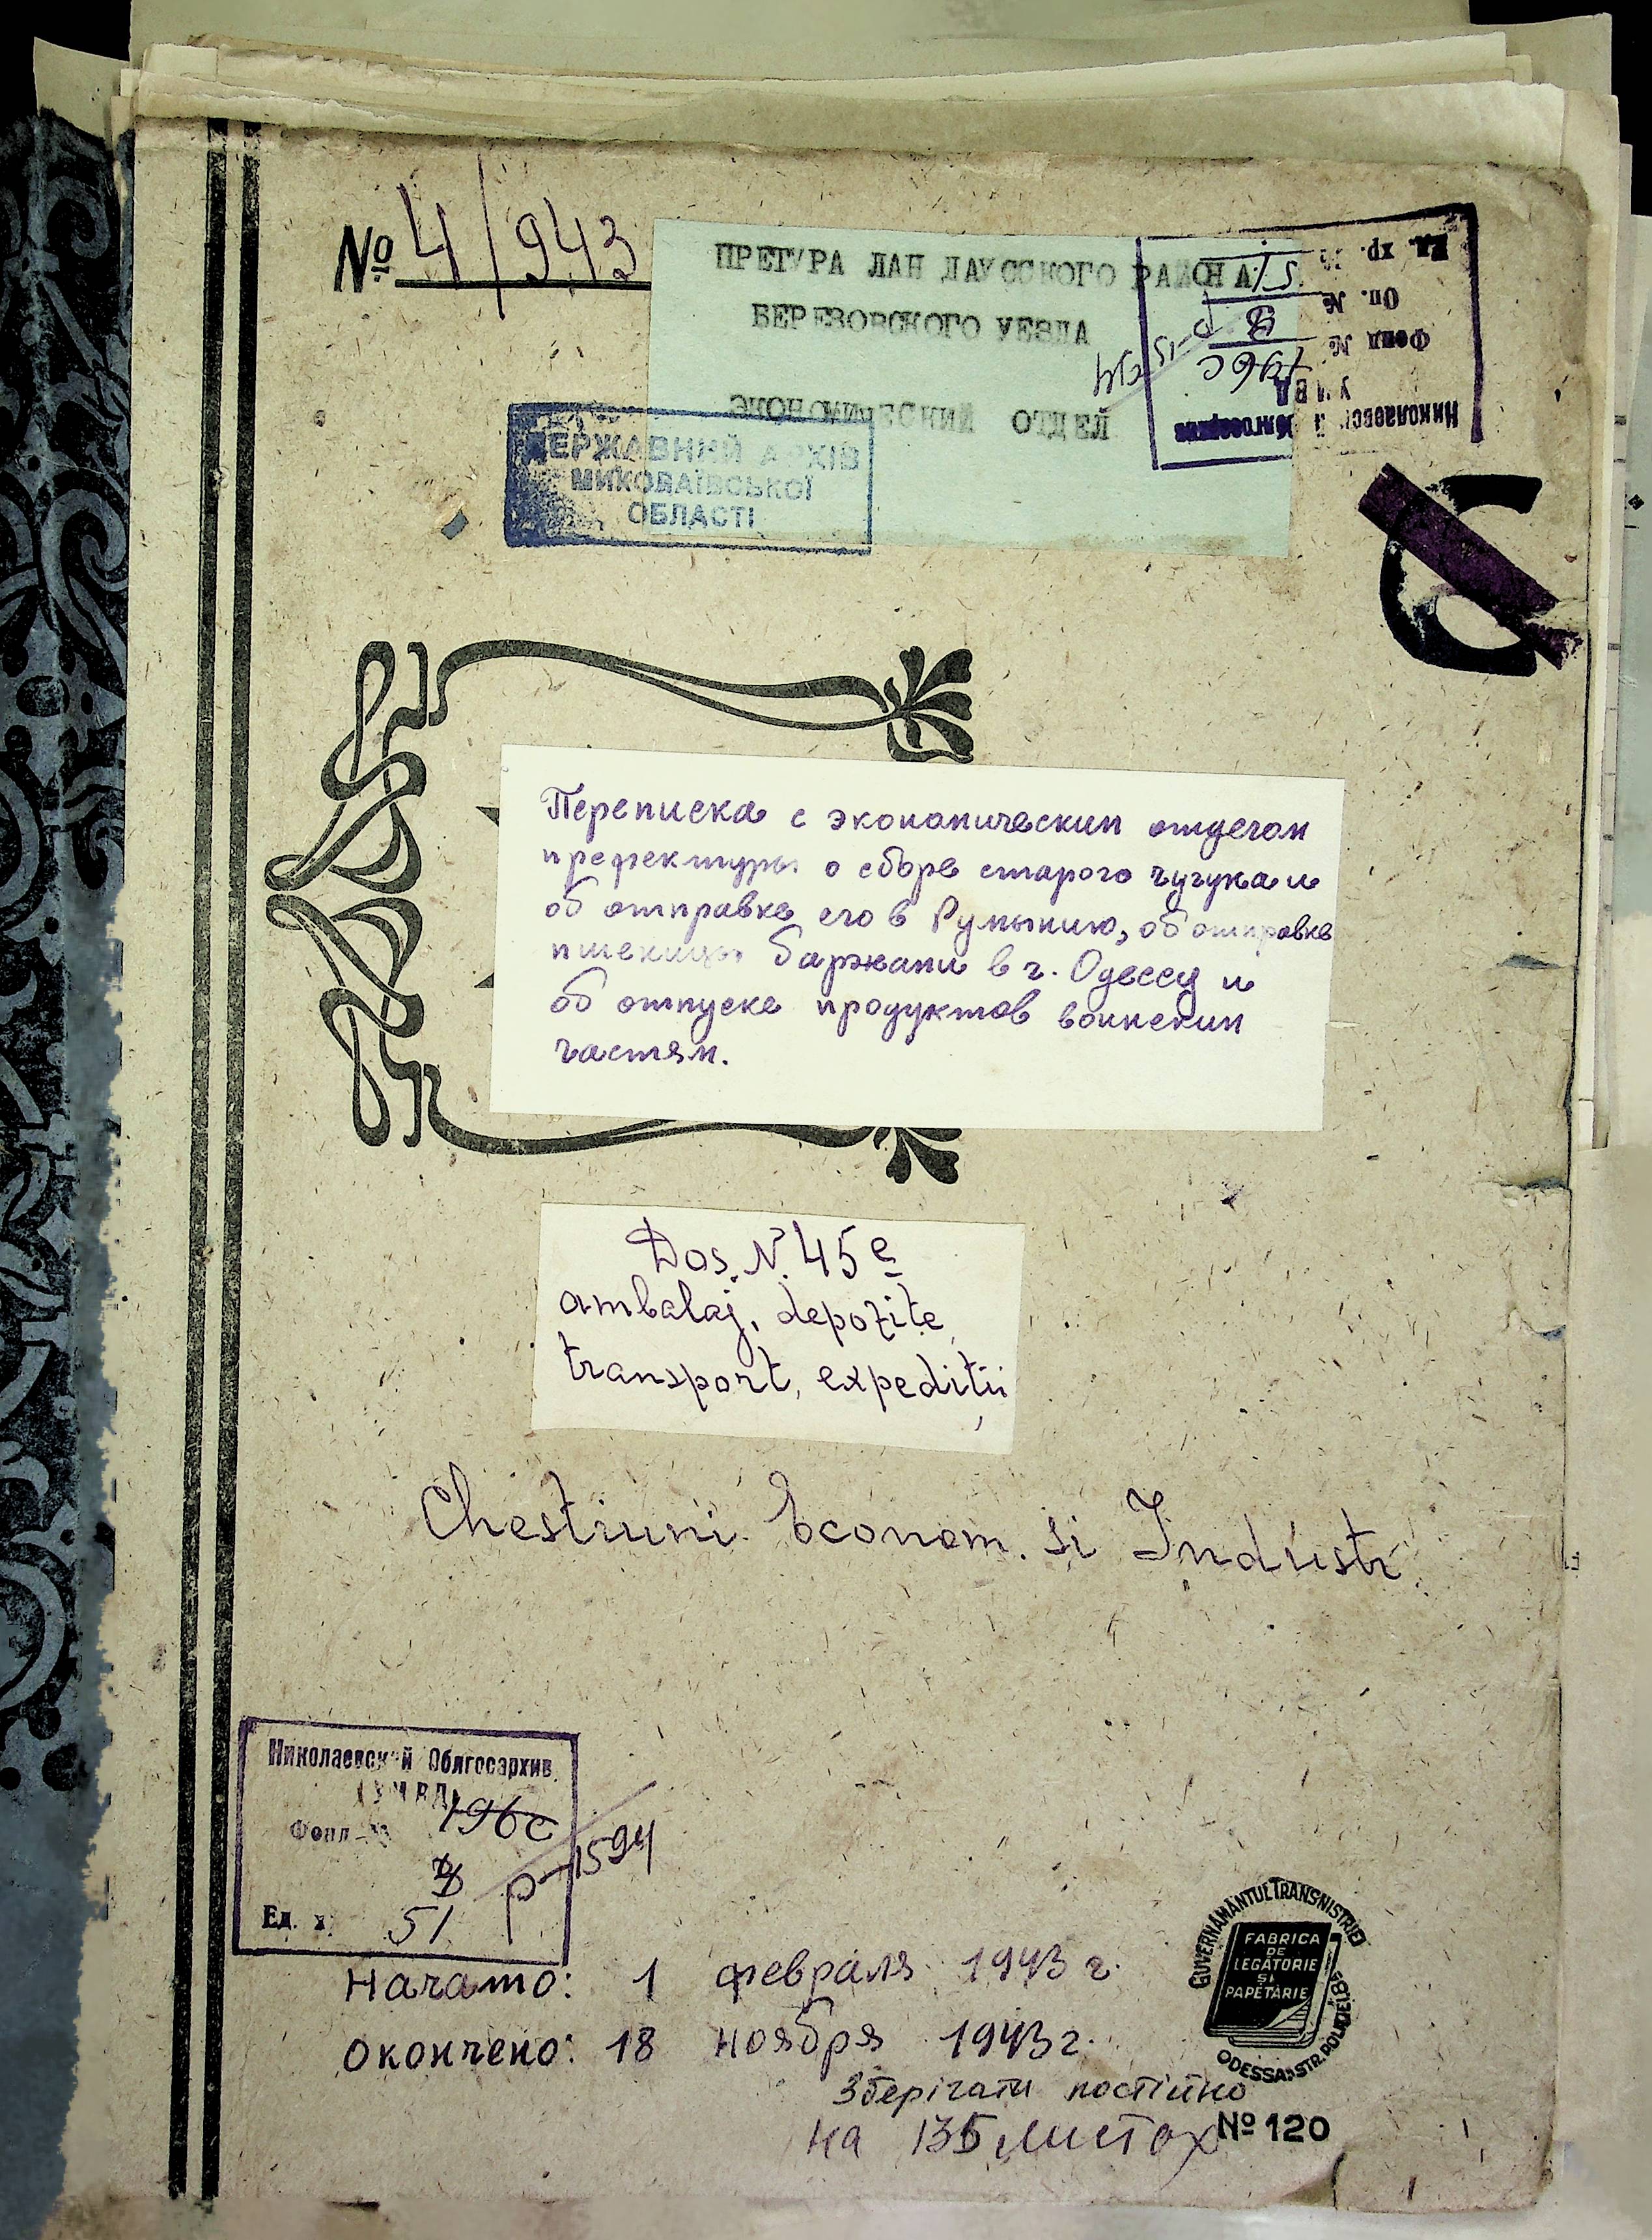 № 4/943
ПРЕТУРА ЛАНДАУССКОГО РАЙОНА
БЕРЕЗОВСКОГО УЕЗДА
ЭКОНОМИЧЕСКИЙ ОТДЕЛ
Николаевский Облгосархив
УМВД
Фонд № 796с
Оп. № 3
Ед. хр. № 51
Р-1594
ДЕРЖАВНИЙ АРХІВ
МИКОЛАЇВСЬКОЇ
ОБЛАСТІ
С
Переписка с экономическим отделом
префектуры о сборе старого чугуна и
об отправке его в Румынию, об отправке
пшеницы баржами в г. Одессу и
об отпуске продуктов воинским
частям.
Dos. N. 45 e
ambalaj, depozite,
transport, expediții
Chestiuni Econom. si Industr.
Николаевский Облгосархив
(УМВД)
Фонд № 796с
3
Р-1594
Ед. х. 51
Начато: 1 февраля 1943 г.
окончено: 18 ноября 1943 г.
Зберігати постійно
на 135 листах
GUVERNĂMÂNTUL TRANSNISTRIEI
FABRICA
DE
LEGĂTORIE
ȘI
PAPETĂRIE
ODESSA STR. POLIȚIEI 28
№ 120